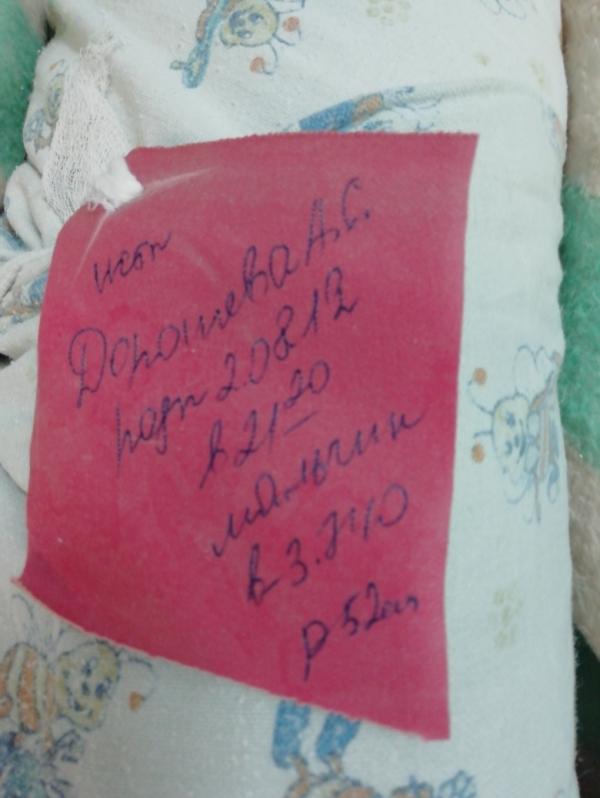 Дорошева А.С.
родр 2.08.12
в 21 20
мальчик
в 3.740
р 52см